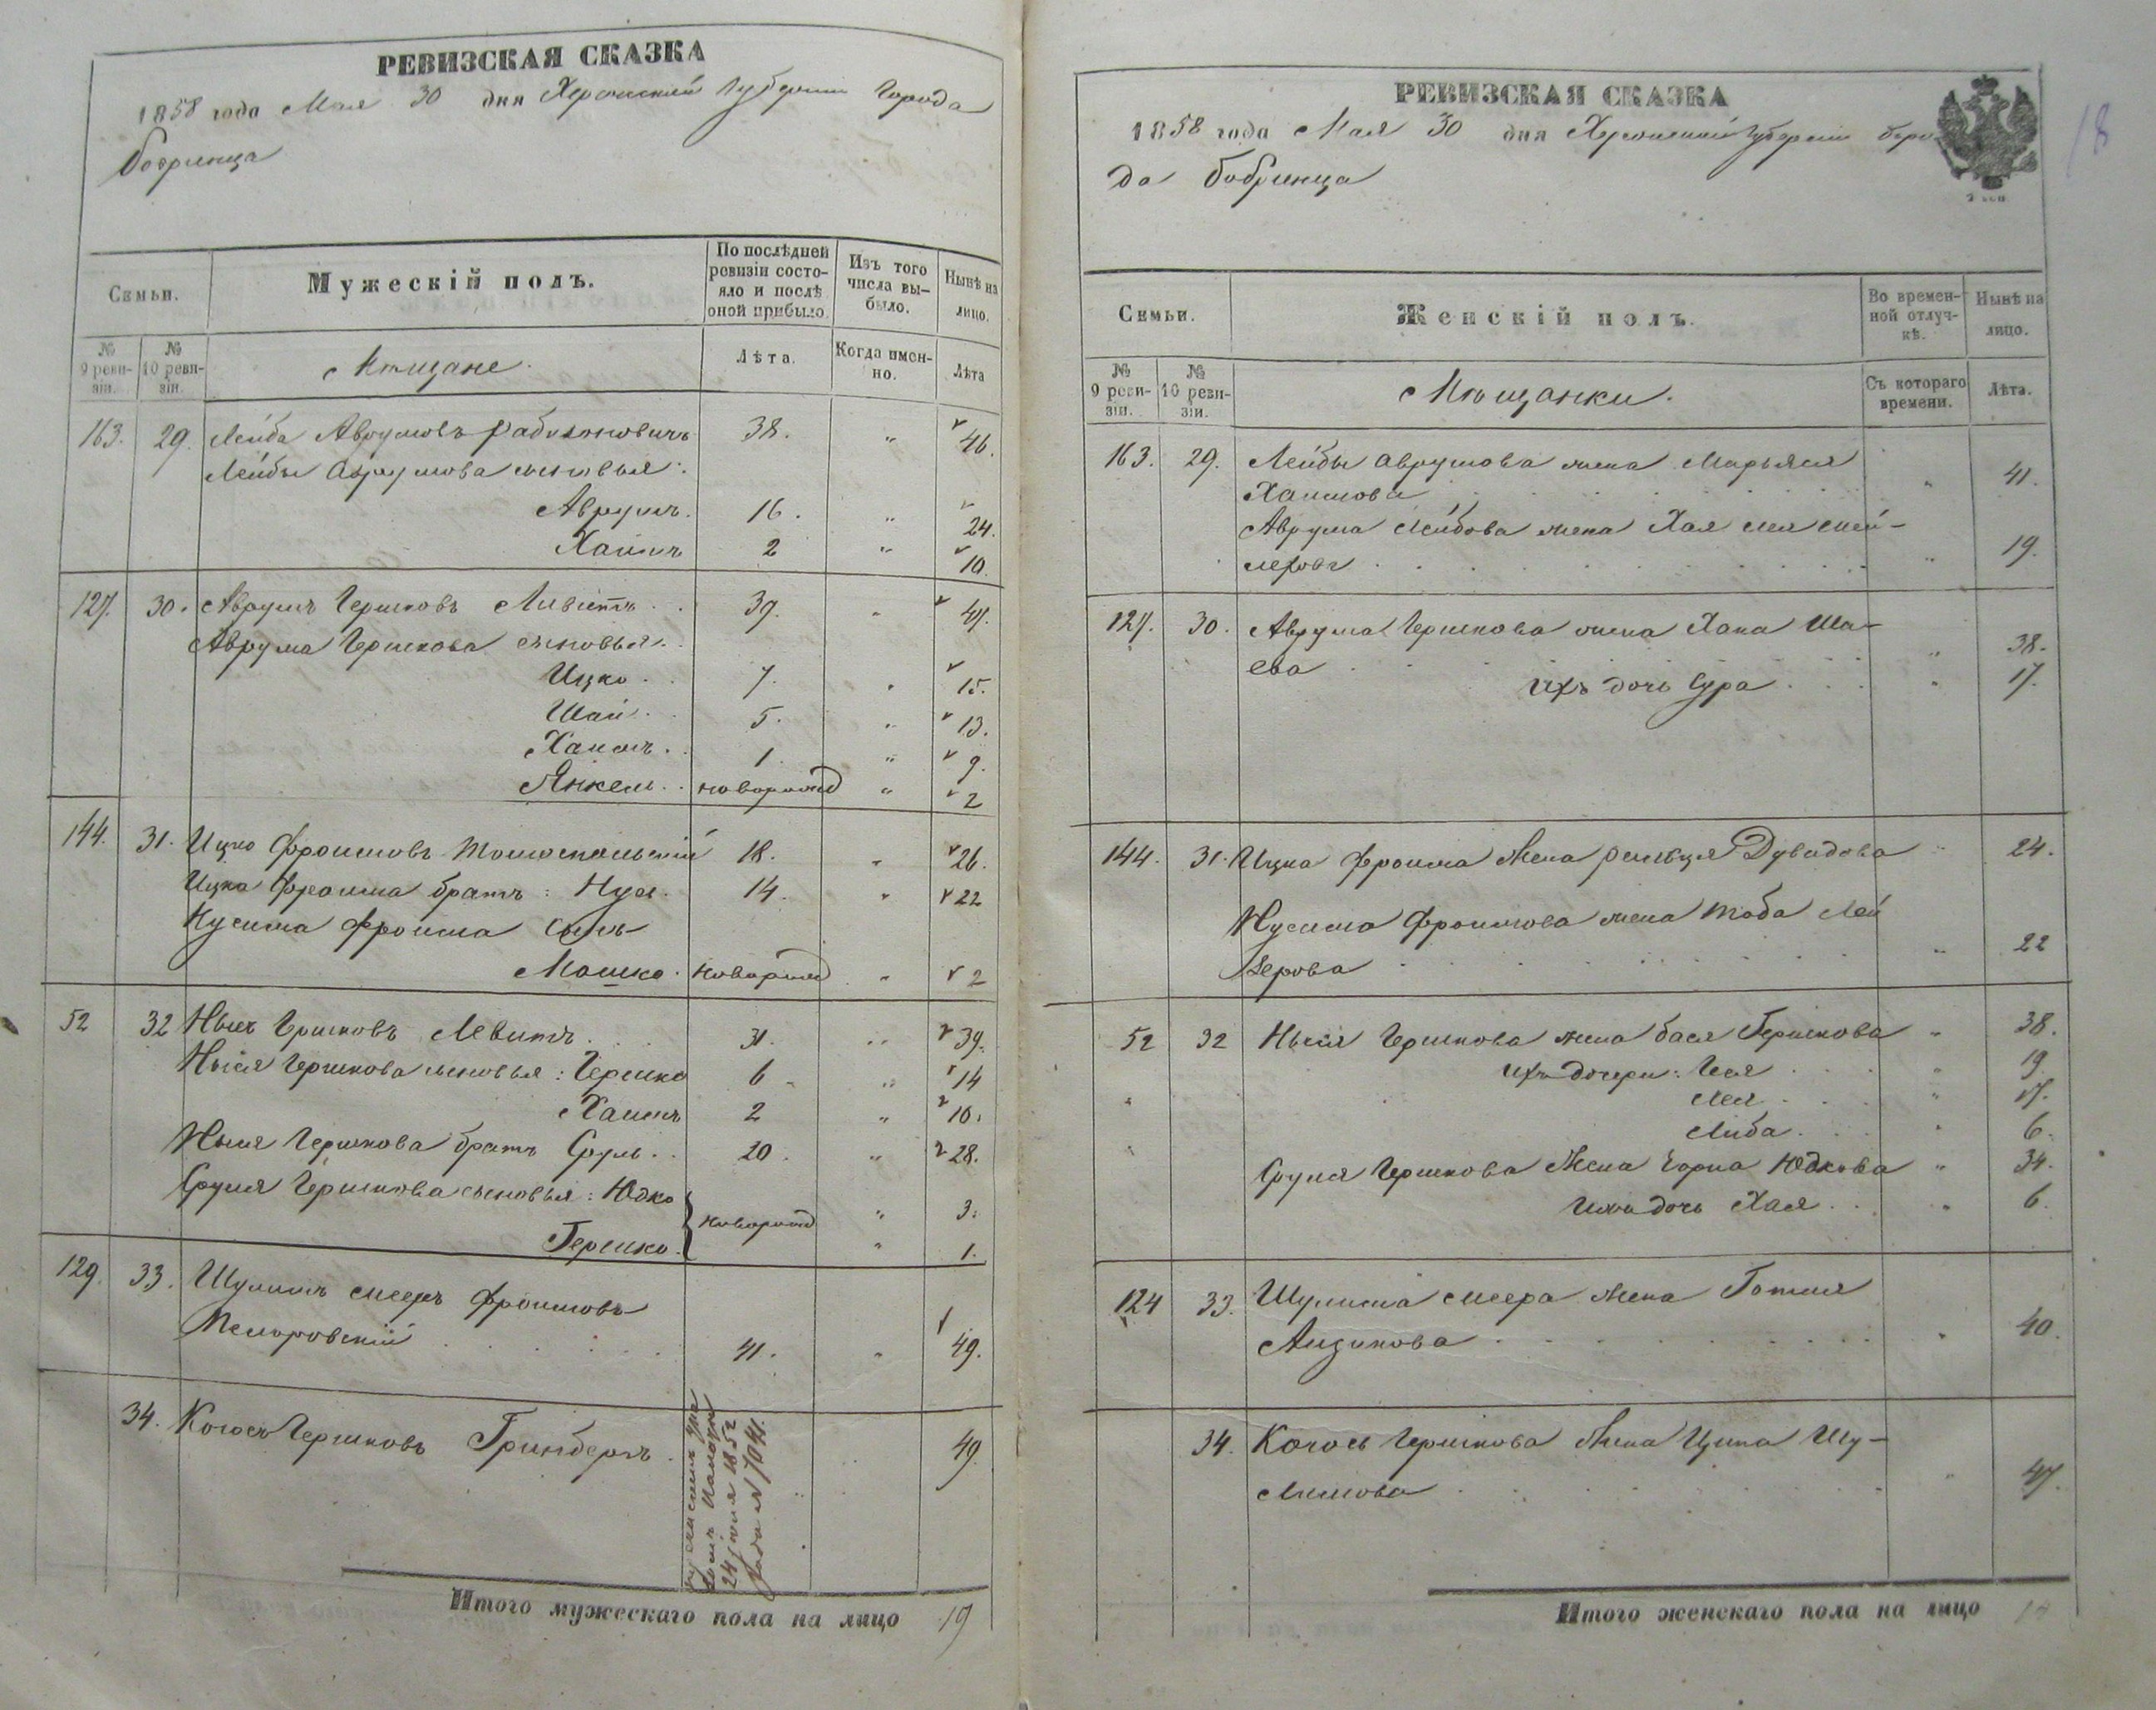 РЕВИЗСКАЯ СКАЗКА
1858 года Мая 30 дня Херсонской Губернии Города
Бобринца
Семьи.
Мужескій полъ.
По послѣдней ревизіи состояло и послѣ оной прибыло.
Изъ того числа выбыло.
Нынѣ на лицо.
№ 9 ревизіи.
№ 10 ревизіи.
Мѣщане.
Лѣта.
Когда именно.
Лѣта
163. 29. Лейба Аврумовъ Рабинововичъ 38. " 46.
Лейбы Аврумова сыновья:
Аврумъ. 16. " 24.
Хаимъ 2 " 10.
127. 30. Аврумъ Гершковъ Ливитъ . . 39. " 47.
Аврума Гершкова сыновья.
Ицко . . 7. " 15.
Шай . . 5. " 13.
Хаимъ . . 1. " 9.
Янкель . . новорожд " 2
144. 31. Ицко Фроимовъ 18. " 26.
Ицка Фроима братъ : Нус. 14. " 22
Нусима Фроима сынъ
Мошко . новорожд " 2
52 32 Нысь Гершковъ Левитъ . . . 31. " 39.
Нысія Гершкова сыновья : Гершко 6 " 14
Хаимъ 2 " 10.
Нысія Гершкова братъ Сруль . . 20. " 28.
Сруля Гершкова сыновья : Юдко
новорожд " 3.
Гершко. " 1.
129. 33. Шулимъ Мееръ Фроимовъ
41. " 49.
34. Гершковъ Гринбергъ . 49.
24 1852
7041.
Итого мужескаго пола на лицо 19
РЕВИЗСКАЯ СКАЗКА
18
1858 года Мая 30 дня Херсонской Губерніи Горо
да Бобринца
Семьи.
Женскій полъ.
Во временной отлучкѣ.
Нынѣ на лицо.
№ 9 ревизіи.
№ 10 ревизіи.
Мѣщанки.
Съ котораго времени.
Лѣта.
163. 29. Лейбы Аврумова жена Марьяся
Хаимова . . . " 41.
Аврума Лейбова жена Хая Мей-
лерова . . . " 19.
127. 30. Аврума Гершкова жена Хана Ша-
ева . . . " 38.
Ихъ дочь Сура . . . " 17.
144. 31. Ицка Фроима жена Дувидова " 24.
Нусима Фроимова жена Тоба Лей
зерова . . . " 22
52 32 Нысія Гершкова жена Бася Гершкова " 38.
Ихъ дочери: Гися . . . " 19
Лея . . . " 17.
Либа . . . " 6.
Сруля Гершкова жена Черна Юдкова " 34.
Ихъ дочь Хая . . . " 6.
124 33. Шулима Меера жена
Айзикова . . . " 40.
34. Гершкова жена Ципа Шу-
лимова . . . " 47.
Итого женскаго пола на лицо